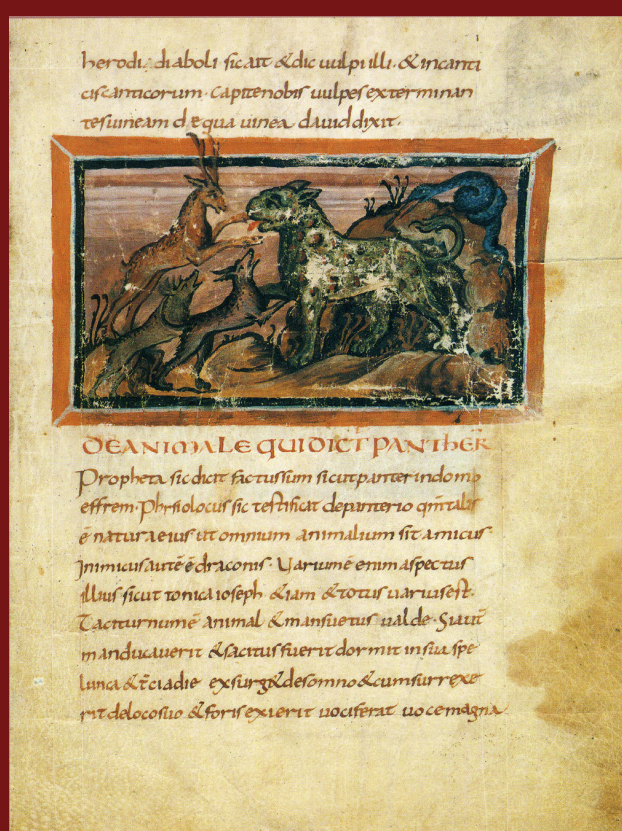 herodi. diaboli sicait &dic uulpi illi. & incanti
ciscanticorum. capitenobis uulpes exterminan
tes uineam de qua uinea dauid dixit.
DE ANIMALE QUI DICT PANTHER
Propheta sic dicit factus sum sicut panter in domo
effrem. Phisiolocus sic testificat depanterio qm̄ talis
ē natura eius ut omnium animalium sit amicus
Inimicus autē ē draconis. Uarium ē enim aspectus
illius sicut tonica ioseph &iam &totus uarius est.
Taciturnum ē animal &mansuetus ualde. Si aut̄
manducauerit &sacitus fuerit dormit in sua spe
lunca &t̄cia die exsurg& desomno & cum surrexe
rit de loco suo & foris exierit uociferat uoce magna